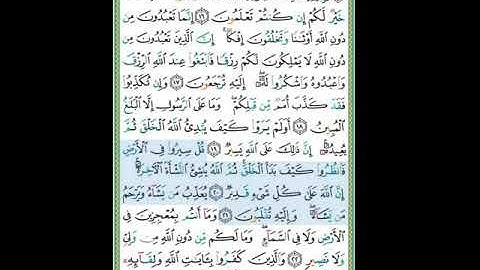 خَيْرٌ لَّكُمْ إِن كُنتُمْ تَعْلَمُونَ ١٦ إِنَّمَا تَعْبُدُونَ مِن
دُونِ اللَّهِ أَوْثَانًا وَتَخْلُقُونَ إِفْكًا إِنَّ الَّذِينَ تَعْبُدُونَ مِن
دُونِ اللَّهِ لَا يَمْلِكُونَ لَكُمْ رِزْقًا فَابْتَغُوا عِندَ اللَّهِ الرِّزْقَ
وَاعْبُدُوهُ وَاشْكُرُوا لَهُ إِلَيْهِ تُرْجَعُونَ ١٧ وَإِن تُكَذِّبُوا
فَقَدْ كَذَّبَ أُمَمٌ مِّن قَبْلِكُمْ وَمَا عَلَى الرَّسُولِ إِلَّا الْبَلَاغُ
الْمُبِينُ ١٨ أَوَلَمْ يَرَوْا كَيْفَ يُبْدِئُ اللَّهُ الْخَلْقَ ثُمَّ
يُعِيدُهُ إِنَّ ذَٰلِكَ عَلَى اللَّهِ يَسِيرٌ ١٩ قُلْ سِيرُوا فِي الْأَرْضِ
فَانظُرُوا كَيْفَ بَدَأَ الْخَلْقَ ثُمَّ اللَّهُ يُنشِئُ النَّشْأَةَ الْآخِرَةَ
إِنَّ اللَّهَ عَلَىٰ كُلِّ شَيْءٍ قَدِيرٌ ٢٠ يُعَذِّبُ مَن يَشَاءُ وَيَرْحَمُ
مَن يَشَاءُ وَإِلَيْهِ تُقْلَبُونَ ٢١ وَمَا أَنتُم بِمُعْجِزِينَ فِي
الْأَرْضِ وَلَا فِي السَّمَاءِ وَمَا لَكُم مِّن دُونِ اللَّهِ مِن وَلِيٍّ
وَلَا نَصِيرٍ ٢٢ وَالَّذِينَ كَفَرُوا بِآيَاتِ اللَّهِ وَلِقَائِهِ